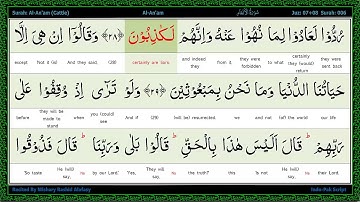 Surah: Al-An'am (Cattle) Al-An'am Juz: 07+08 Surah: 006
رُدُّوْا لَعَادُوْا لِمَا نُهُوْا عَنْهُ وَاِنَّهُمْ لَكٰذِبُوْنَ ﴿۲۸﴾ وَقَالُوْۤا اِنْ هِىَ اِلَّا
except Not it (is) And they said, (28) certainly are liars. and indeed they from it, they were forbidden to what certainly they (would) return they were sent back
حَيَاتُنَا الدُّنْيَا وَمَا نَحْنُ بِمَبْعُوْثِيْنَ ﴿۲۹﴾ وَلَوْ تَرٰۤى اِذْ وُقِفُوْا عَلٰى
before they will be made to stand when you (could) see And if (29) (will be) resurrected. we and not (of) the world our life
رَبِّهِمْ ؕ قَالَ اَلَيْسَ هٰذَا بِالْحَقِّ ؕ قَالُوْا بَلٰى وَرَبِّنَا ؕ قَالَ فَذُوْقُوا
"So taste He (will) say, by our Lord. "Yes, They (will) say, the truth? this "Is not He (will) say, their Lord.
Recited By Mishary Rashid Alafasy Indo Pak Script